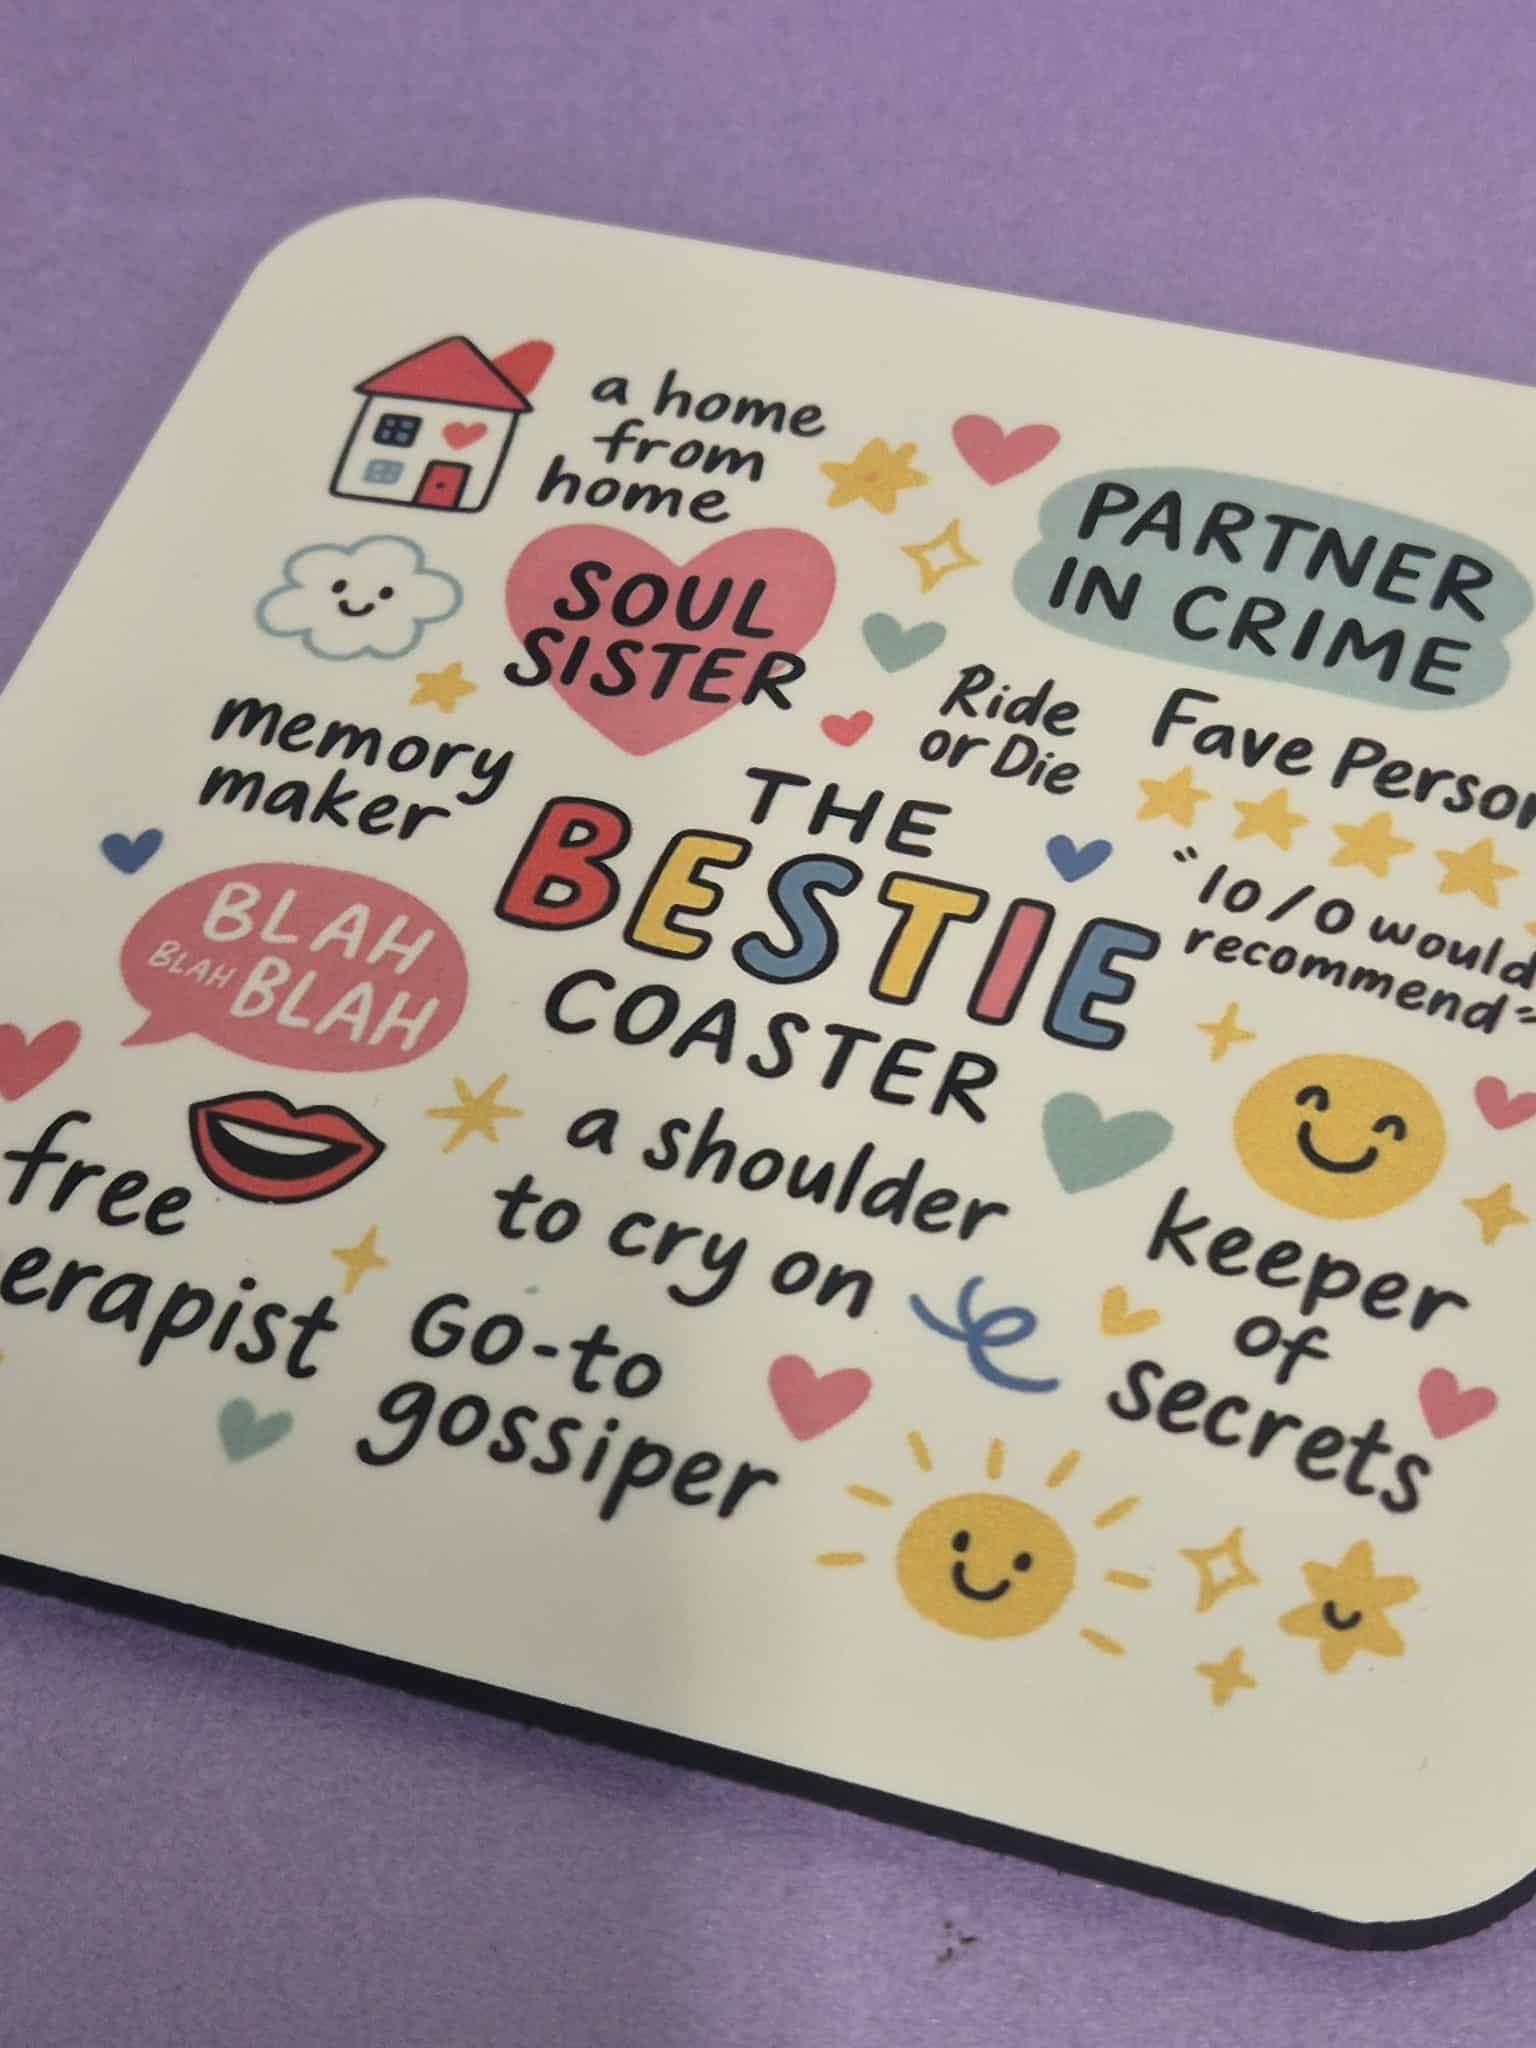 a home
from
home
SOUL
SISTER
PARTNER
IN CRIME
memory
maker
Ride
or Die
Fave Person
"10/0 would
recommend"
THE
BESTIE
COASTER
BLAH
BLAH BLAH
free
erapist
a shoulder
to cry on
Go-to
gossiper
keeper
of
secrets